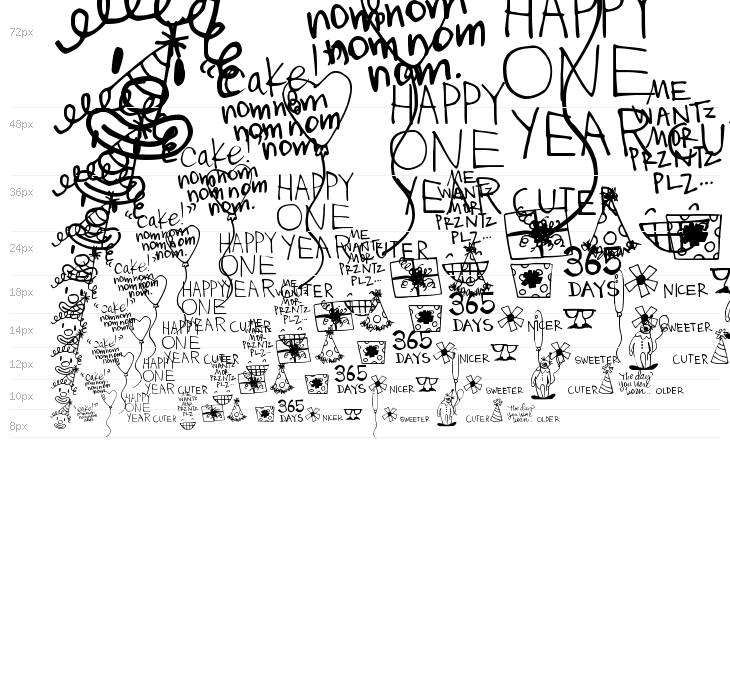 72px
nomnom
nom nom
nom.
HAPPY
ONE
YEAR
48px
"Cake!"
nomnom
nom nom
nom.
HAPPY
ONE
YEAR CUTER
ME
WANTZ
MOR
PRZNTZ
PLZ...
36px
"Cake!"
nomnom
nom nom
nom.
HAPPY
ONE
YEAR CUTER
ME
WANTZ
MOR
PRZNTZ
PLZ...
365
DAYS NICER
24px
"Cake!"
nomnom
nom nom
nom.
HAPPY
ONE
YEAR CUTER
ME
WANTZ
MOR
PRZNTZ
PLZ...
365
DAYS NICER SWEETER
18px
"Cake!"
nomnom
nom nom
nom.
HAPPY
ONE
YEAR CUTER
ME
WANTZ
MOR
PRZNTZ
PLZ...
365
DAYS NICER SWEETER CUTER
14px
"Cake!"
nomnom
nom nom
nom.
HAPPY
ONE
YEAR CUTER
ME
WANTZ
MOR
PRZNTZ
PLZ...
365
DAYS NICER SWEETER CUTER
The day
you were
born... OLDER
12px
"Cake!"
nomnom
nom nom
nom.
HAPPY
ONE
YEAR CUTER
ME
WANTZ
MOR
PRZNTZ
PLZ
365
DAYS NICER SWEETER CUTER
The day
you were
born... OLDER
10px
8px